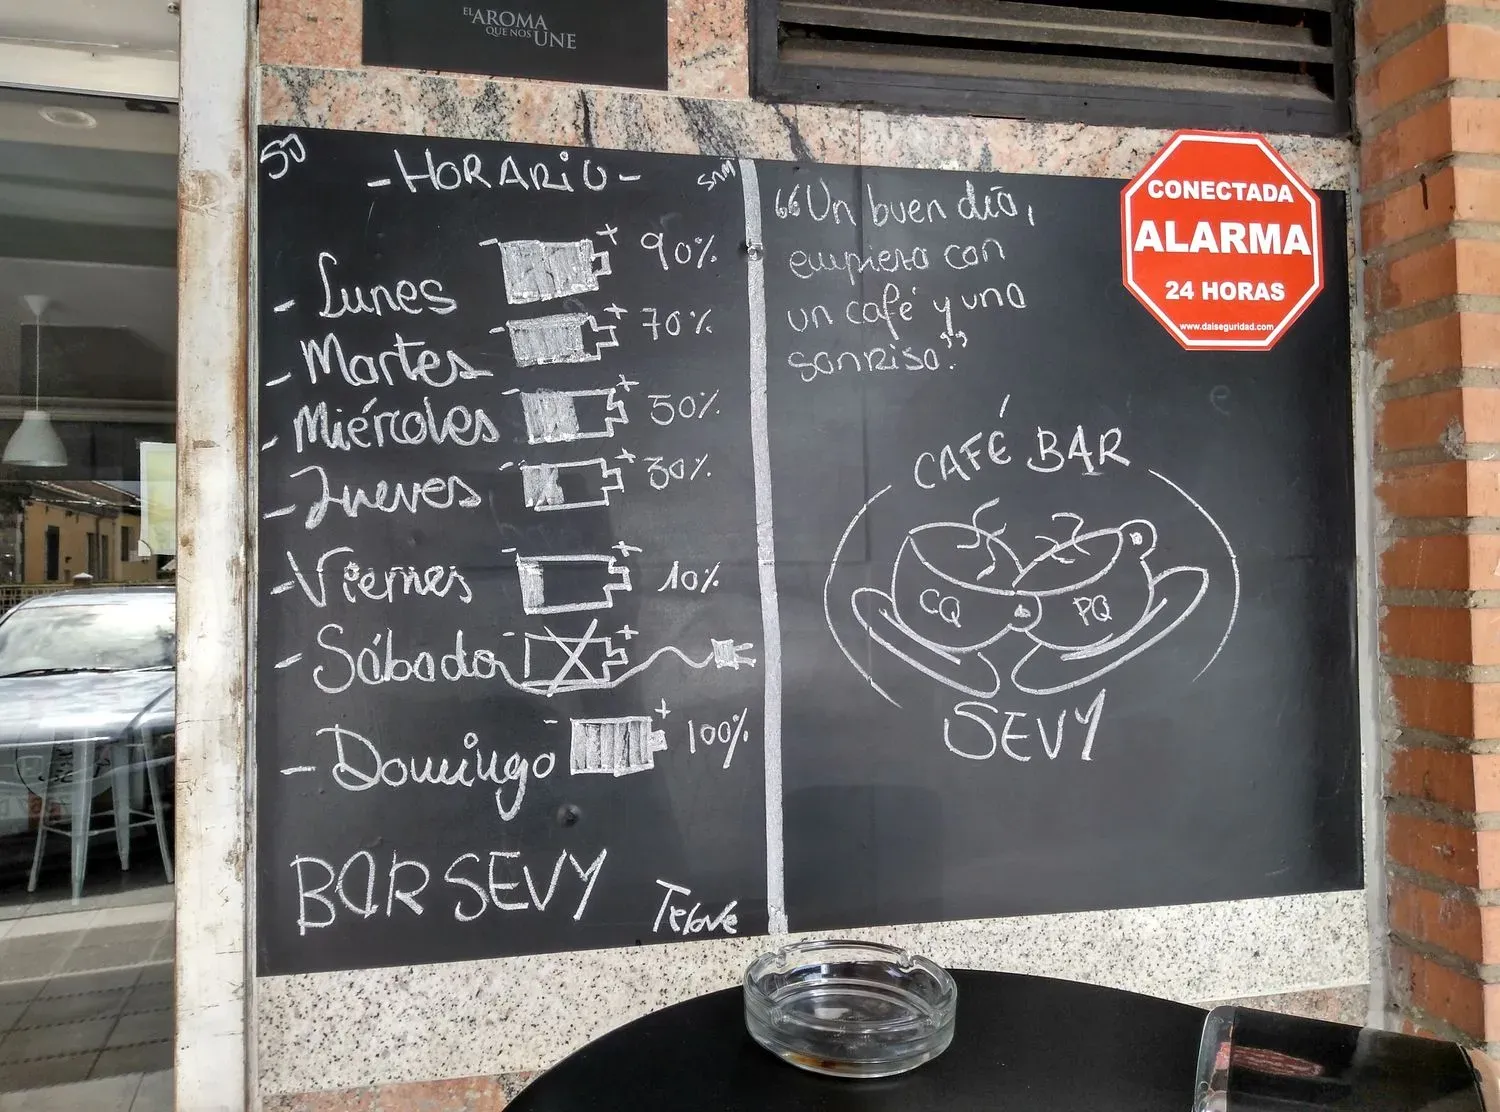 EL AROMA
QUE NOS UNE
- HORARIO -
- Lunes 90%
- Martes 70%
- Miércoles 50%
- Jueves 30%
- Viernes 10%
- Sábado
- Domingo 100%
BAR SEVY
“Un buen día,
empieza con
un café y una
sonrisa.”
CAFÉ BAR
CQ PQ
SEVY
CONECTADA
ALARMA
24 HORAS
www.daiseguridad.com